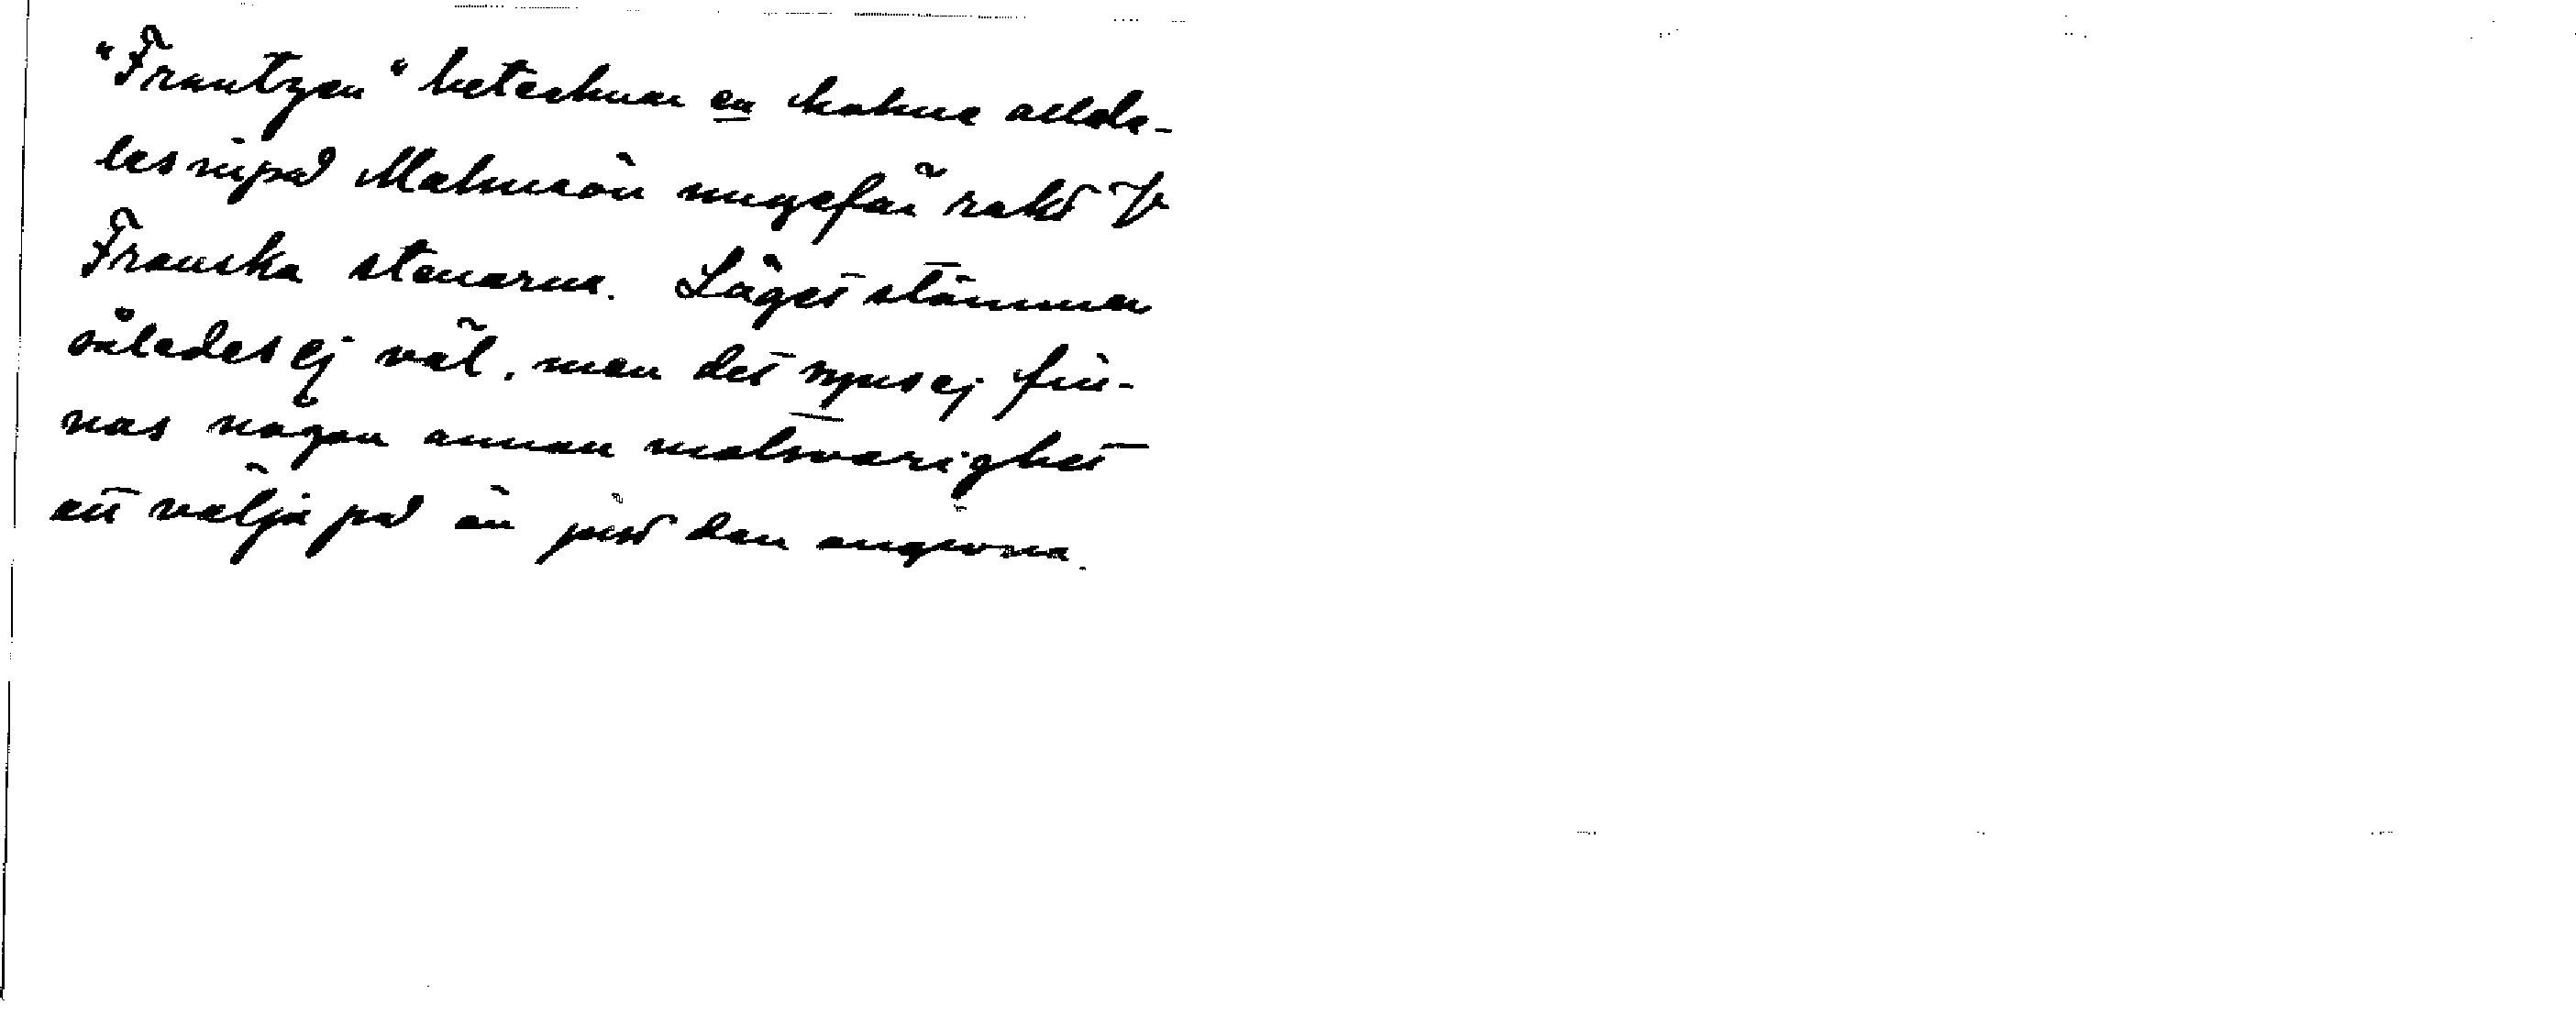 "Frantzen" betecknar en holme allde-
les inpå Malmön ungefär rakt V
Franska stenarna. Läget stämmer
således ej väl, men det synes ej fin-
nas någon annan motsvarighet
att välja på än just den angivna.